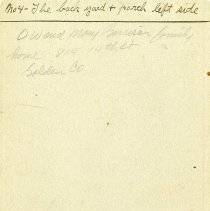 No 4 - The back yard + porch left side
O W and Mary family
home 814 14th St
Golden Co